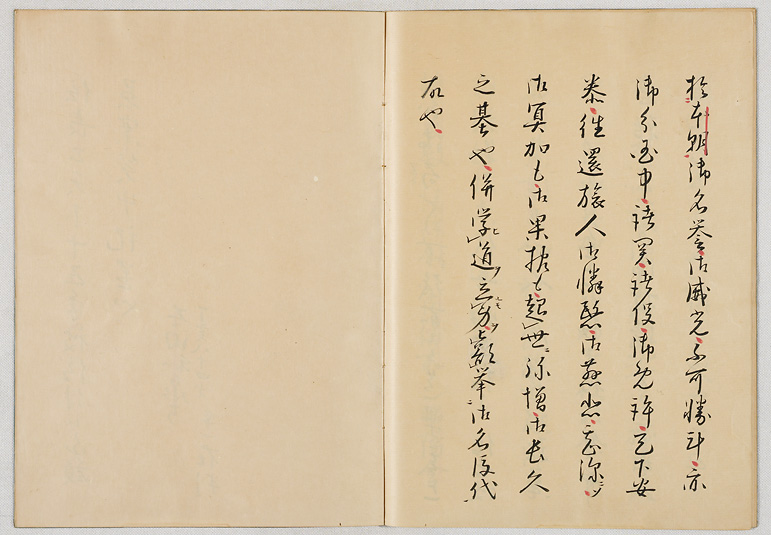 於本朝御名誉御威光不可勝計亦
御分国中諸関諸役御免許天下安
泰往還旅人御憐愍御慈悲甚深シ
御冥加も御果報も超世弥増御長久
之基也併学ヒ道ヲ立身ヲ顕挙御名後代
故也